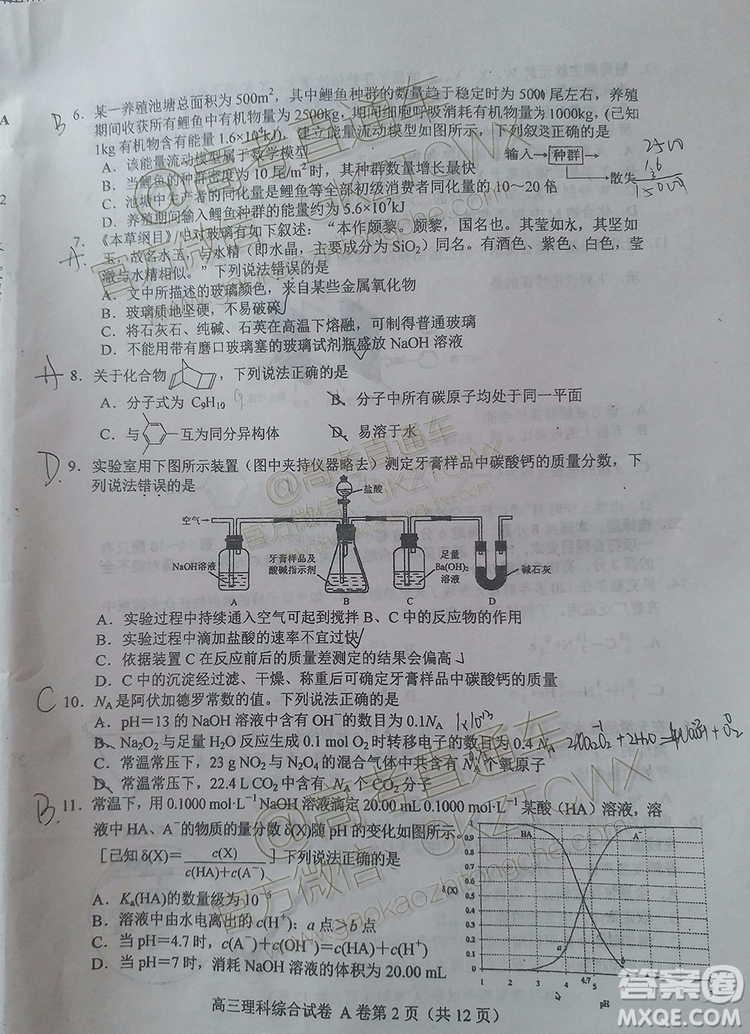 6. 某一养殖池塘总面积为500m²，其中鲤鱼种群的数量趋于稳定时为5000尾左右，养殖
B
期间收获所有鲤鱼中有机物量为2500kg，期间细胞呼吸消耗有机物量为1000kg，(已知
1kg有机物含有能量1.6×10⁴kJ)。建立能量流动模型如图所示，下列叙述正确的是
A．该能量流动模型属于数学模型
输入→种群→
散失
B．当鲤鱼的密度为10尾/m²时，其种群数量增长最快
C．池塘中生产者的同化量是鲤鱼等全部初级消费者同化量的10～20倍
D．养殖期间输入鲤鱼种群的能量约为5.6×10⁷kJ
7. 《本草纲目》中对玻璃有如下叙述：“本作颇黎。颇黎，国名也。其莹如水，其坚如
A
玉，故名水玉。与水精（即水晶，主要成分为SiO₂）同名。有酒色、紫色、白色，莹
澈与水精相似。”下列说法错误的是
A．文中所描述的玻璃颜色，来自某些金属氧化物
B．玻璃质地坚硬，不易破碎
C．将石灰石、纯碱、石英在高温下熔融，可制得普通玻璃
D．不能用带有磨口玻璃塞的玻璃试剂瓶盛放NaOH溶液
A 8．关于化合物，下列说法正确的是
A．分子式为C₉H₁₉
B．分子中所有碳原子均处于同一平面
C．与互为同分异构体
D．易溶于水
D. 9．实验室用下图所示装置（图中夹持仪器略去）测定牙膏样品中碳酸钙的质量分数，下
列说法错误的是
盐酸
空气→
NaOH溶液
牙膏样品及
酸碱指示剂
足量
Ba(OH)₂
溶液
碱石灰
A B C D
A．实验过程中持续通入空气可起到搅拌B、C中的反应物的作用
B．实验过程中滴加盐酸的速率不宜过快
C．依据装置C在反应前后的质量差测定的结果会偏高
D．C中的沉淀经过滤、干燥、称重后可确定牙膏样品中碳酸钙的质量
C 10．Nᴀ是阿伏加德罗常数的值。下列说法正确的是
A．pH＝13的NaOH溶液中含有OH⁻的数目为0.1Nᴀ
B．Na₂O₂与足量H₂O反应生成0.1 mol O₂时转移电子的数目为0.4 Nᴀ
C．常温常压下，23 g NO₂与N₂O₄的混合气体中共含有Nᴀ个氧原子
D．常温常压下，22.4 L CO₂中含有Nᴀ个CO₂分子
B. 11．常温下，用0.1000 mol·L⁻¹NaOH溶液滴定20.00 mL 0.1000 mol·L⁻¹某酸（HA）溶液，溶
液中HA、A⁻的物质的量分数δ(X)随pH的变化如图所示。
[已知δ(X)＝c(X)/(c(HA)+c(A⁻))] 下列说法正确的是
A．Kₐ(HA)的数量级为10⁻⁵
B．溶液中由水电离出的c(H⁺)：a点＞b点
C．当pH＝4.7时，c(A⁻)＋c(OH⁻)＝c(HA)＋c(H⁺)
D．当pH＝7时，消耗NaOH溶液的体积为20.00 mL
1
0.9
0.8
0.7
0.6
0.5
0.4
0.3
0.2
0.1
0
δ(X)
HA
A⁻
a
b
1 2 3 4 4.7 5 6 7 8
pH
高三理科综合试卷 A卷第2页（共12页）
@高考直通车
官方微信：GKZTCWX
www.gaokaozhitongche.com
答案圈
MXQE.COM